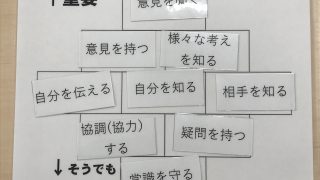 重要
意見を聞く
意見を持つ
様々な考え
を知る
自分を伝える
自分を知る
相手を知る
協調(協力)
する
疑問を持つ
↓そうでも
常識を守る